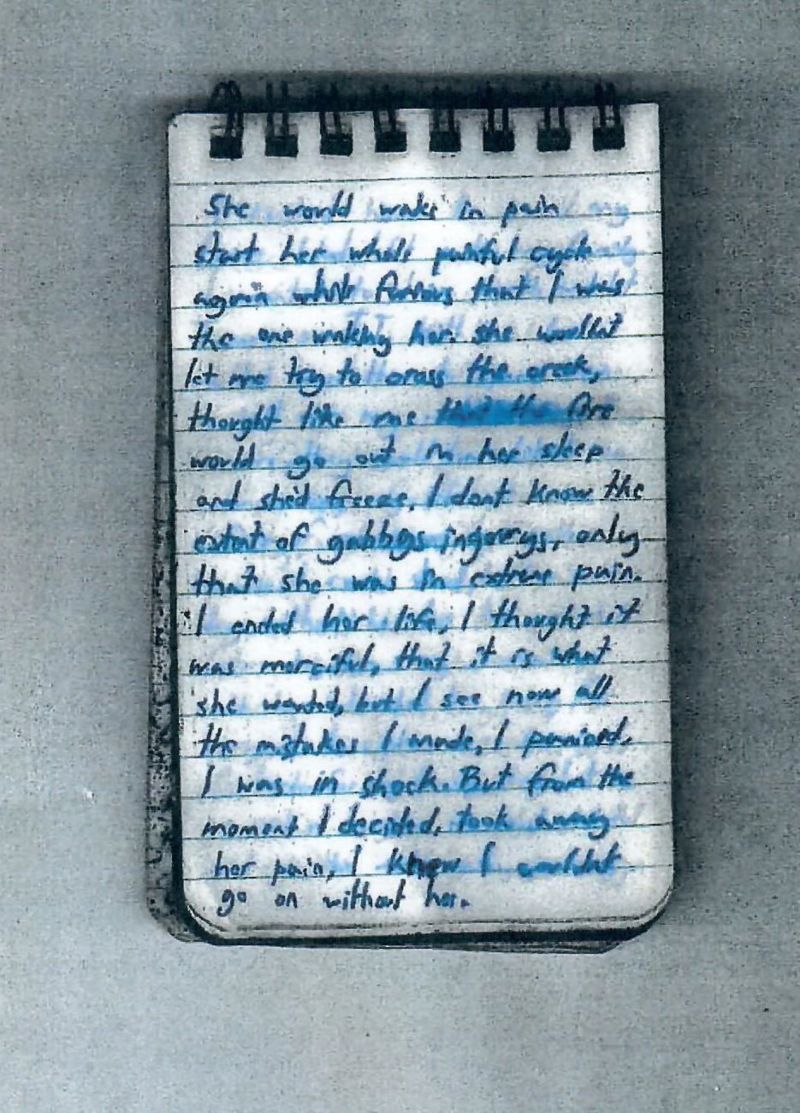 She would wake in pain my
start her whole painful cycle
again while furious that I was
the one waking her. she wouldnt
let me try to cross the creek,
thought like me that the fire
would go out in her sleep
and she'd freeze. I dont know the
extent of gabbys injurys, only
that she was in extreme pain.
I ended her life, I thought it
was merciful, that it is what
she wanted, but I see now all
the mistakes I made, I panicked,
I was in shock. But from the
moment I decided, took away
her pain, I knew I couldnt
go on without her.